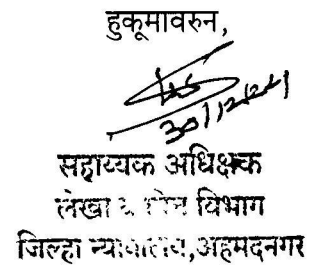 हुकूमावरुन,
30/12/24
सहाय्यक अधिक्षक
लेखा व विभाग
जिल्हा न्यायालय,अहमदनगर